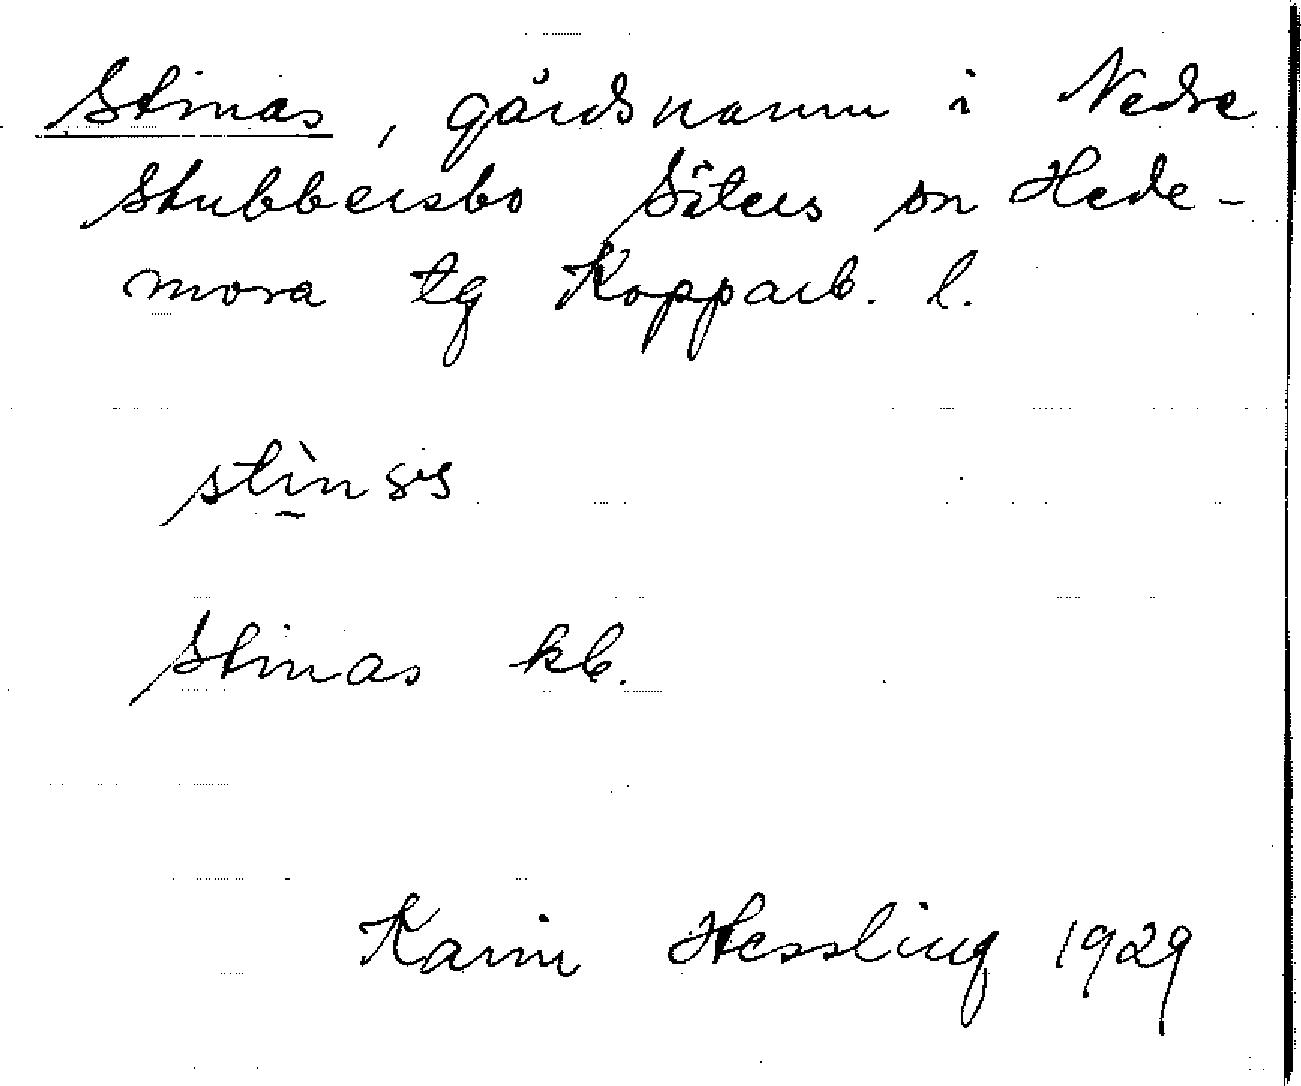 Stinas, gårdsnamn i Nedre
Stubbersbo Säters sn Hede-
mora tg Kopparb. l.
Stinas kb.
Karin Hessling 1929